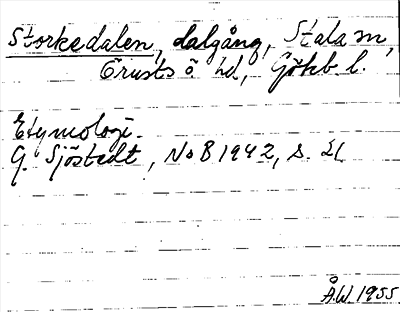 Storkedalen, dalgång, Stala sn,
Orusts ö hd, Götbb. l.
Etymologi.
G. Sjöstedt, NoB 1942, s. 21
Å.W. 1955